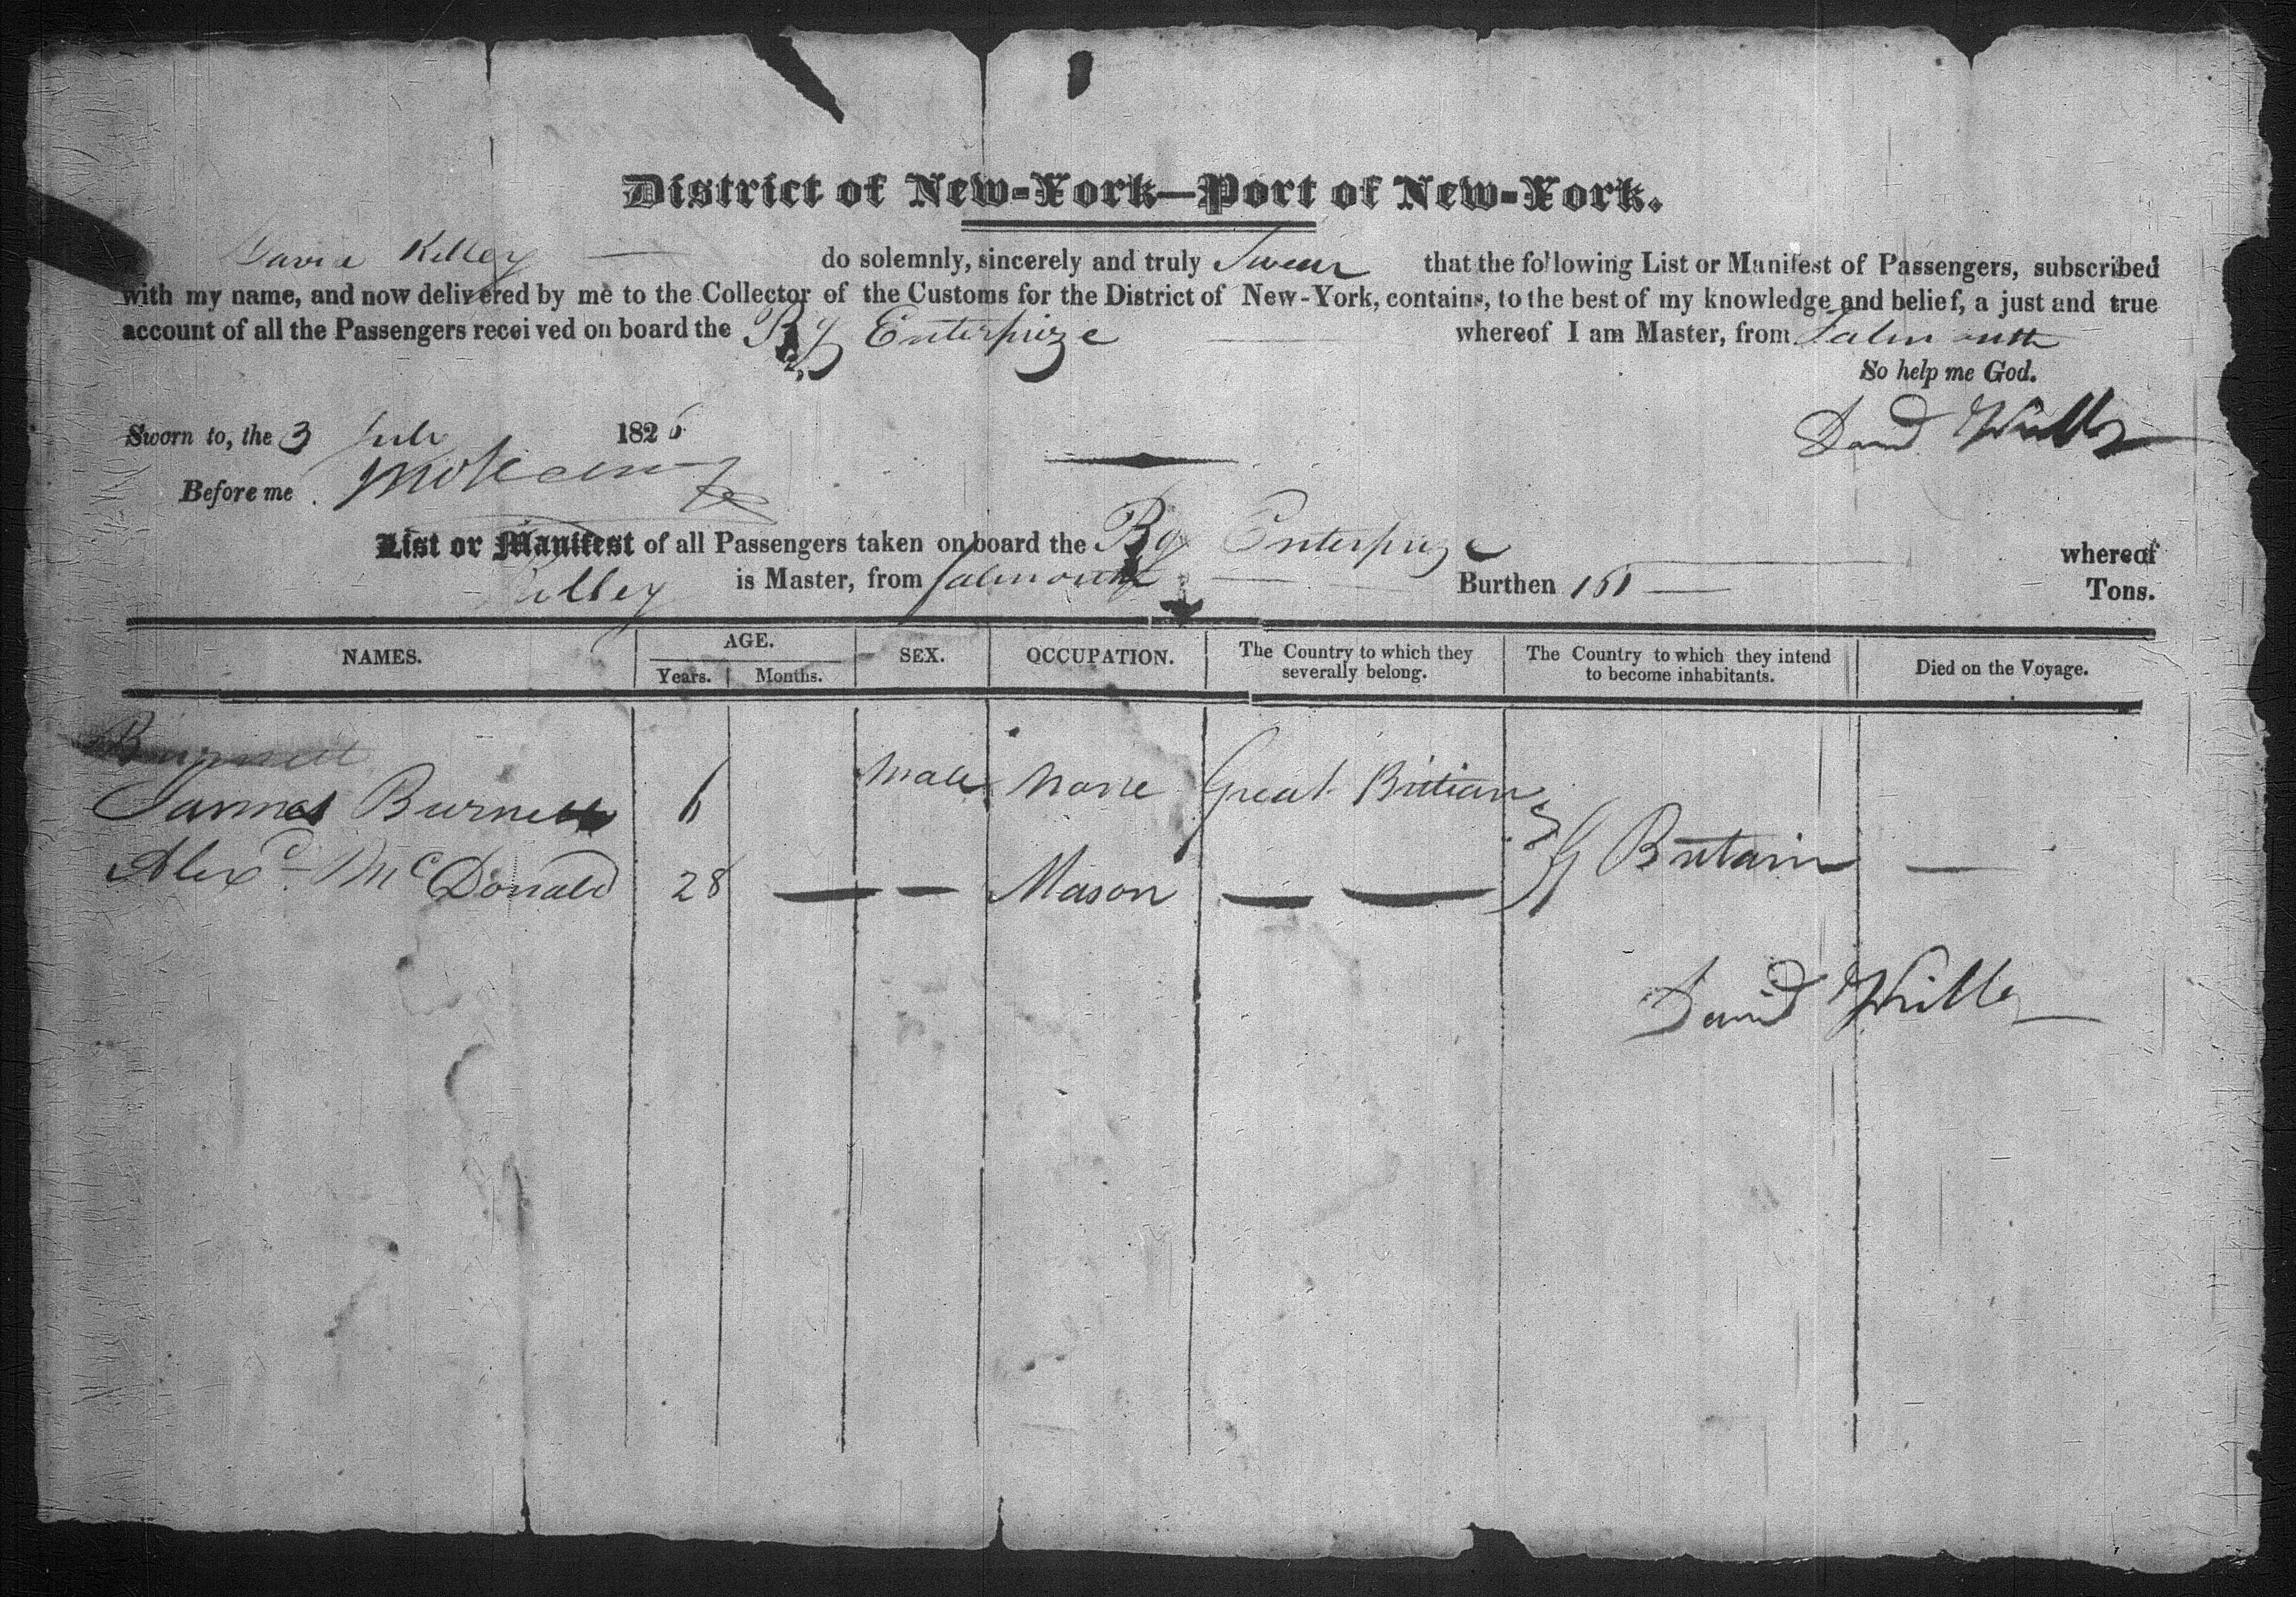 District of New-York—Port of New-York.
David Kelley — do solemnly, sincerely and truly Swear that the following List or Manifest of Passengers, subscribed
with my name, and now delivered by me to the Collector of the Customs for the District of New-York, contains, to the best of my knowledge and belief, a just and true
account of all the Passengers received on board the Bg Enterprize — whereof I am Master, from Falmouth
So help me God.
Sworn to, the 3 July 1826
David
Before me
List or Manifest of all Passengers taken on board the Bg Enterprize whereof
Kelley is Master, from Falmouth — Burthen 151 — Tons.
NAMES. AGE. SEX. OCCUPATION. The Country to which they severally belong. The Country to which they intend to become inhabitants. Died on the Voyage.
Years. Months.
James Burnett 6 Male None Great Britian
Alexd McDonald 28 — — Mason — — G Britain —
David